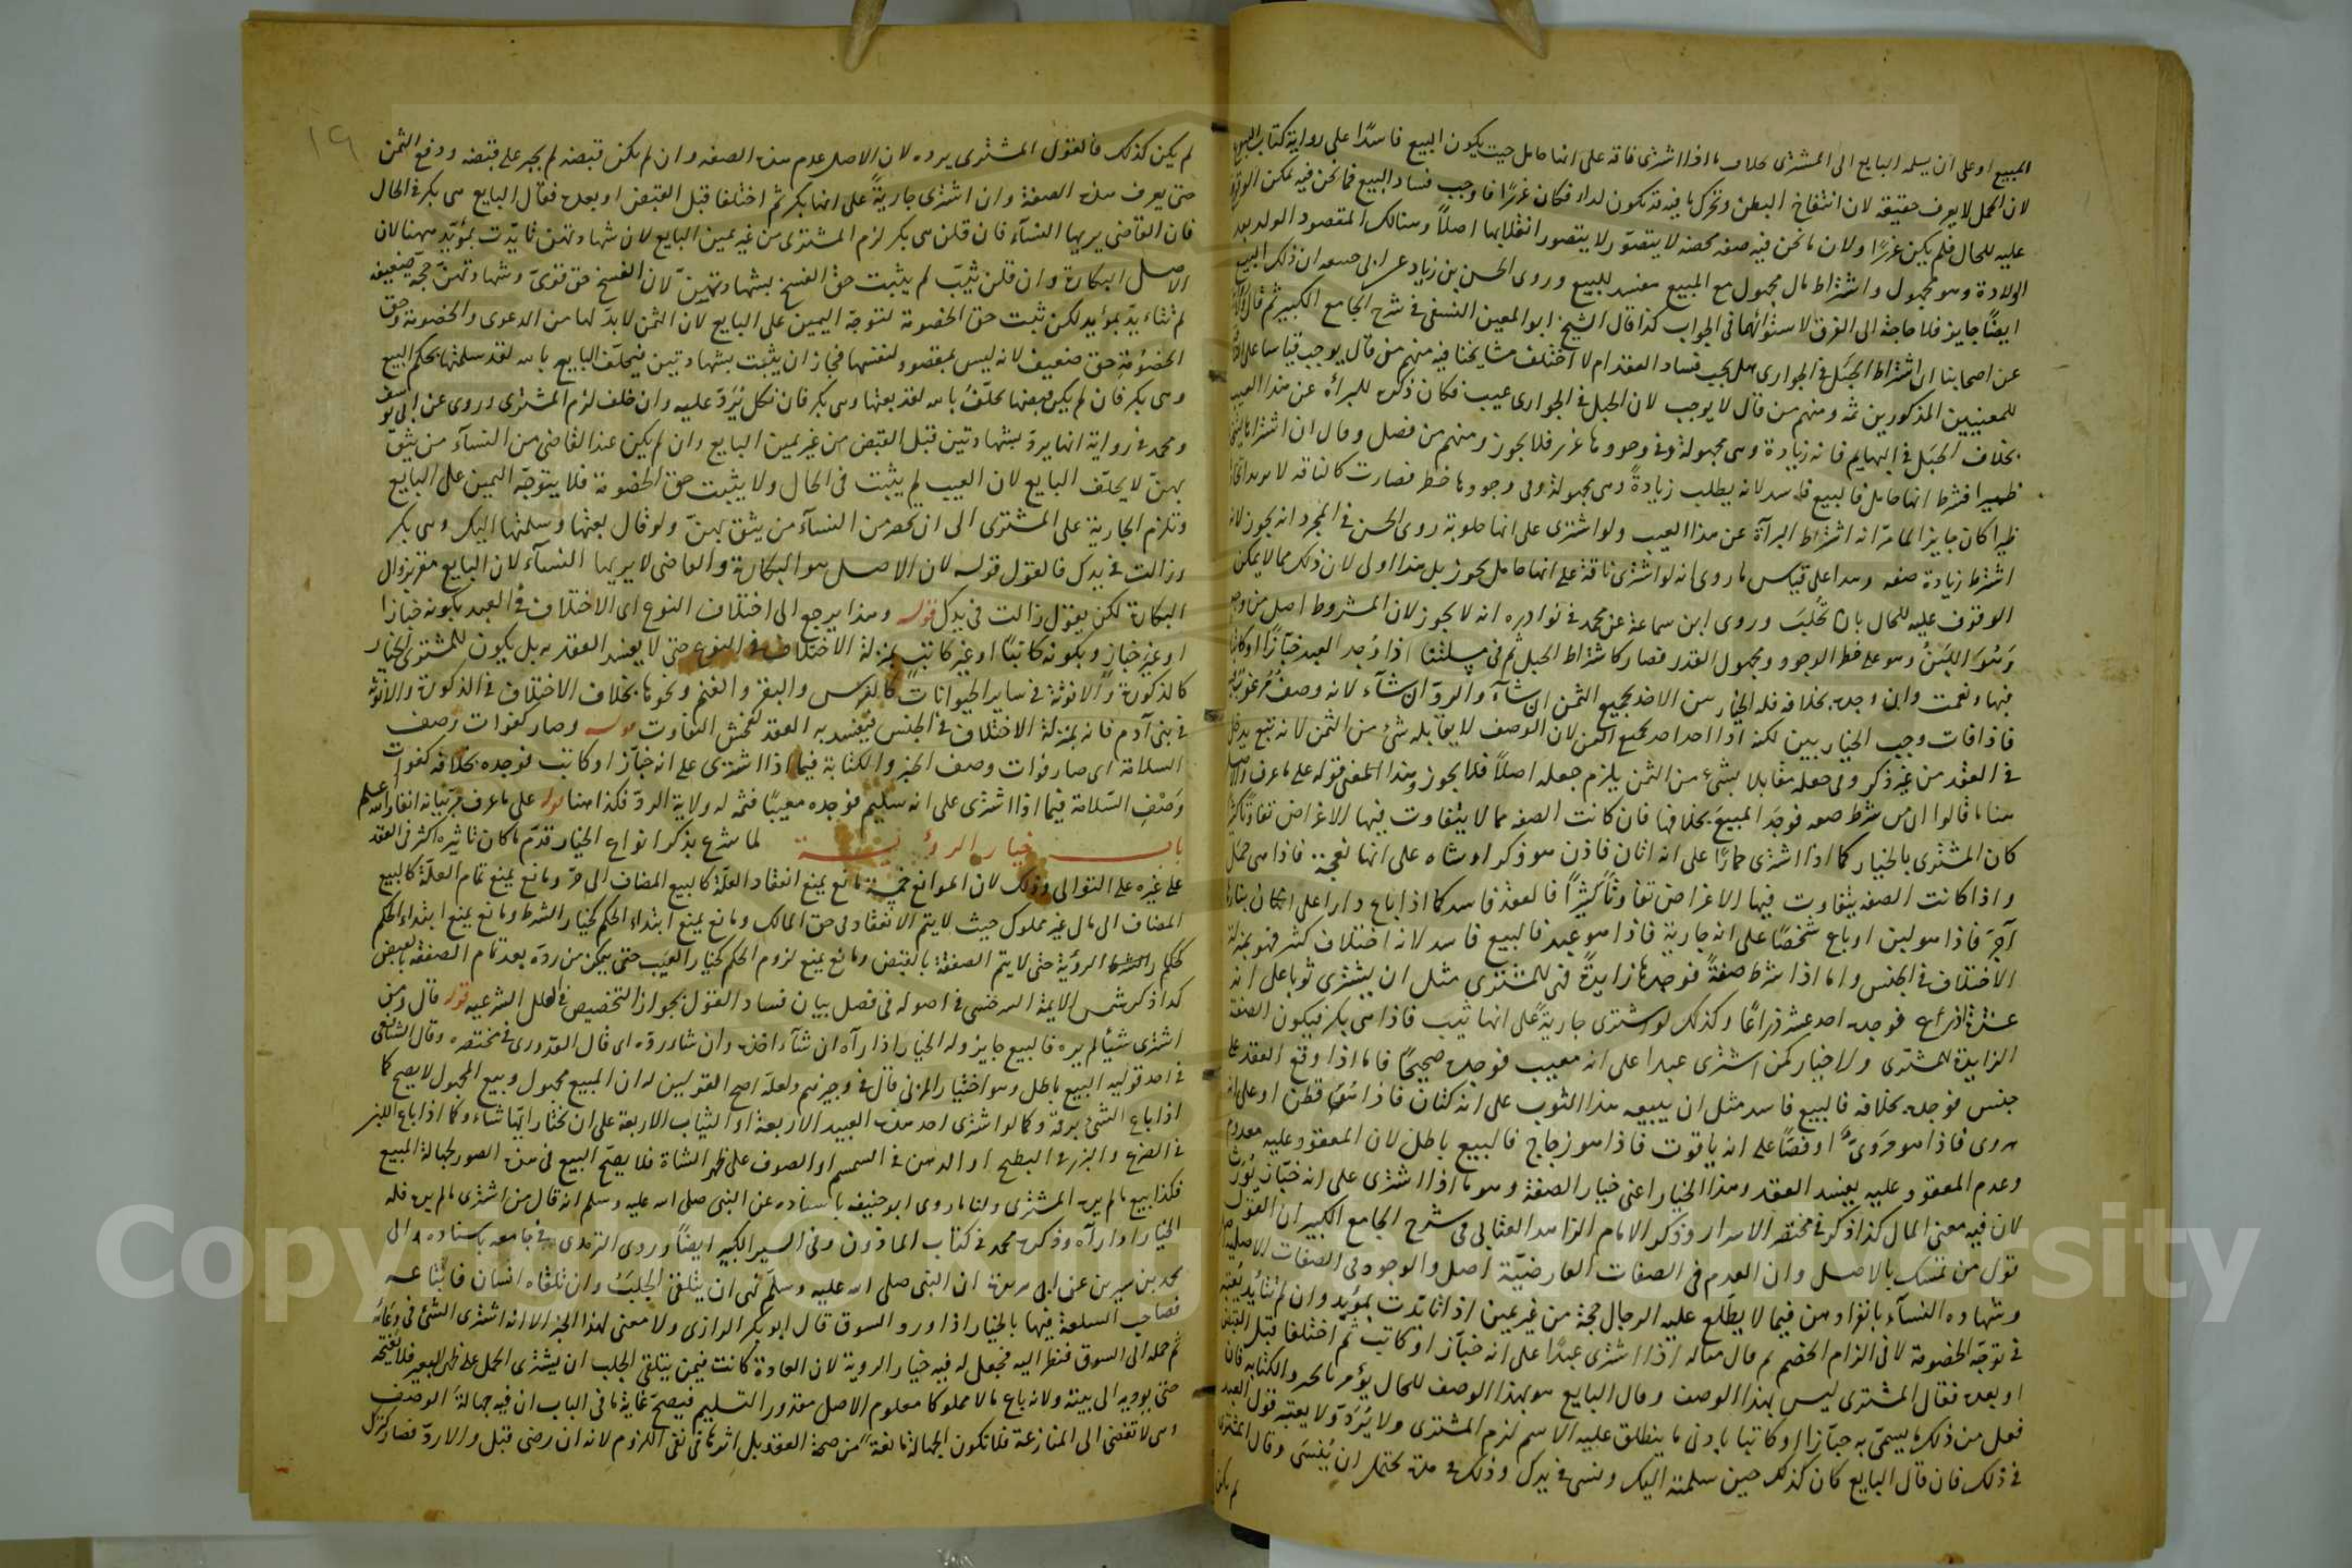 المبيع او على ان يسلمه البايع الى المشترى بخلاف ما اذا اشترى ناقة على انها حامل حيث يكون البيع فاسدًا على رواية كتاب البيوع
لان الحمل لا يعرف حقيقه لان انتفاخ البطن وتحرك ما فيه قد يكون لداء فكان غررًا فاوجب فساد البيع فما نحن فيه يمكن الوقوف
عليه للحال فلم يكن غررًا ولان ما نحن فيه صفه محضه لا يتصوّر لا يتصور انقلابها اصلاً وهنالك المقصود الولد بعد
الولادة وهو مجهول واشتراط مال مجهول مع المبيع مفسد للبيع وروى الحسن بن زياد عن ابى حنيفه ان ذلك البيع
ايضًا جايز فلا حاجة الى الفرق لاستوائهما فى الجواب كذا قال الشيخ ابو المعين النسفى فى شرح الجامع الكبير ثم قال
عن اصحابنا ان اشتراط الحَبَل فى الجوارى هل يجب فساد العقد ام لا اختلف مشايخنا فيه منهم من قال يوجب قياسا على
للمعنيين المذكورين ثمه ومنهم من قال لا يوجب لان الحبل فى الجوارى عيب فكان ذكره للبرأه عن هذا العيب
بخلاف الحَبَل فى البهايم فانه زيادة وهى مجهولة وفى وجودها غرر فلا يجوز ومنهم من فصل وقال ان اشتراها ليتخذ
ظيرا فشرط انها حامل فالبيع فاسد لانه يطلب زيادةً وهى مجهولة وفى وجودها خطر فصارت كالناقه
ظيرا كان جايز الما مرّ انه اشتراط البرآة عن هذا العيب ولو اشترى على انها حلوبة روى الحسن فى المجرد انه يجوز لانه
اشترط زيادة صفه وهذا على قياس ما روى انه لو اشترى ناقة على انها حامل يجوز بل هذا اولى لان ذلك مما لا يمكن
الوقوف عليه للحال بان تُحلَبَ وروى ابن سماعة عن محمد فى نوادره انه لا يجوز لان المشروط اصل من وجه
وَهُوَ اللَبَنُ وهو على خطر الوجود ومجهول القدر فصار كاشتراط الحبل ثم فى مسئلتنا اذا وُجد العبد خبّازًا او كاتبًا
فبها ونعمت وان وجده بخلافه فله الخيار بين الاخذ بجميع الثمن ان شآء والردّ ان شآء لانه وصف مُرغوب
فاذا فات وجب الخيار بين لكنه اذا اخذه اخذه بجميع الثمن لان الوصف لا يقابله شئ من الثمن لانه تبع يدخل
فى العقد من غير ذكر وفى جعله مقابلا بشئ من الثمن يلزم جعله اصلاً فلا يجوز وهذا المعنى قوله على ما عرف والاصل
هنا ما قالوا ان من شرط صفه فوجَد المبيعَ بخلافها فان كانت الصفه مما لا يتفاوت فيها الاغراض تفاوتًا كثيرًا
كان المشترى بالخيار كما اذا اشترى حمارًا على انه اتان فاذن هو ذكر او شاه على انها نعجة فاذا هى حمل
واذا كانت الصفه يتفاوت فيها الاغراض تفاوتًا كثيرًا فالعقد فاسد كما اذا باع دارا على ان بناءها
آجرّ فاذا هو لبن او باع شخصًا على انه جارية فاذا هو عبد فالبيع فاسد لانه اختلاف كثير فهو بمنزلة
الاختلاف فى الجنس واما اذا شرط صفةً فوجدها زايدةً فهى للمشترى مثل ان يشترى ثوبا على انه
عشرة اذرع فوجده احد عشر ذراعًا وكذلك لو اشترى جاريةً على انها ثيب فاذا هى بكر فيكون الصفة
الزايدة للمشترى ولا خيار كمن اشترى عبدا على انه معيب فوجده صحيحًا فاما اذا وقع العقد على
جنس فوجده بخلافه فالبيع فاسد مثل ان يبيعه هذا الثوب على انه كتان فاذا هُوَ قطن او على انه
هروى فاذا هو مَروىّ او فصًّا على انه ياقوت فاذا هو زجاج فالبيع باطل لان المعقود عليه معدوم
وعدم المعقود عليه يفسد العقد وهذا الخيار اعنى خيار الصفة وهو ما اذا اشترى على انه خبّاز يُورَث
لان فيه معنى المال كذا ذكر فى مختصر الاسرار وذكر الامام الزاهد العتابى فى شرح الجامع الكبير ان القول
قول من تمسك بالاصل وان العدم فى الصفات العارضيّة اصل والوجود فى الصفات الاصلية
وشهاده النسآء بانفرادهن فيما لا يطّلع عليه الرجال حجة من غير يمين اذا تايّدت بمؤيّد وان لم تتايّد يُعتبر
فى توجّه الخصومة لا فى الزام الخصم ثم قال مثاله اذا اشترى عبدًا على انه خبّاز او كاتب ثم اختلفا قبل القبض
او بعده فقال المشترى ليس بهذا الوصف وقال البايع هو بهذا الوصف للحال يؤمر بالخبز والكتابه فان
فعل من ذلك ما يسمّى به خبّازا او كاتبا بادنى ما ينطلق عليه الاسم لزم المشترى ولا يُرَدّ ولا يعتبر قول العبد
فى ذلك فان قال البايع كان كذلك حين سلمته اليك ونسى فى يدك وذلك فى مدة يحتمل ان يُنسَى وقال المشترى
لم يكن
١٩
لم يكن كذلك فالقول للمشترى يرده لان الاصل عدم هذه الصفه وان لم يكن قبضه لم يجبر على قبضه ودفع الثمن
حتى يعرف هذه الصفة وان اشترى جاريةً على انها بكر ثم اختلفا قبل القبض او بعده فقال البايع هى بكر فى الحال
فان القاضى يريها النسآء فان قلن هى بكر لزم المشترى من غير يمين البايع لان شهادتهن تايّدت بمؤيّد ههنا لان
الاصل البكارة وان قلن ثيّب لم يثبت حق الفسخ بشهادتهنّ لان الفسخ حق قوىّ وشهادتهنّ حجّة ضعيفه
لم تتاءيد بمؤيد لكن ثبت حق الخصومة لتوجّه اليمين على البايع لان الثمن لا بدّ لها من الدعوى والخصومة وحق
الخصُومةِ حق ضعيف لانه ليس بمقصود لنفسها فجاز ان يثبت بشهادتهن فيحلف البايع بالله لقد سلمتها بحكم البيع
وهى بكر فان لم يكن قبضها يحلّفُ بالله لقد بعتها وهى بكر فان نكل يُرَدّ عليه وان حلف لزم المشترى وروى عن ابى يوسف
ومحمد فى رواية انها يردّ بشهادتهن قبل القبض من غير يمين البايع وان لم يكن عند القاضى من النسآء من يثق
بهنّ لا يحلّف البايع لان العيب لم يثبت فى الحال ولا يثبت حق الخصومة فلا يتوجّه اليمين على البايع
وتلزم الجارية على المشترى الى ان يحضر من النسآء من يثق بهنّ ولو قال بعتها وسلمتها اليك وهى بكر
وزالت فى يدك فالقول قوله لان الاصل هو البكارة والقاضى لا يريها النسآء لان البايع مقرّ بزوال
البكارة لكن يقول زالت فى يدك قوله وهذا يرجع الى اختلاف النوع اى الاختلاف فى العبد بكونه خبازا
او غير خباز وبكونه كاتبًا او غير كاتب بمنزلة الاختلاف فى النوع حتى لا يفسد العقد به بل يكون للمشترى الخيار
كالذكورة والانوثة فى ساير الحيوانات كالفرس والبقر والغنم ونحوها بخلاف الاختلاف فى الذكورة والانوثة
فى بنى آدم فانه بمنزلة الاختلاف فى الجنس فيفسد به العقد لفحش التفاوت قوله وصار كفوات وصف
السلامة اى صار فوات وصف الخبز والكتابة فيما اذا اشترى على انه خبّاز او كاتب فوجده بخلافه كفوات
وَصْف السّلامة فيما اذا اشترى على انه سليم فوجده معيبًا فثمه له ولاية الردّ فكذا هنا قوله على ما عرف مرّ بيانه انفا والله اعلم
باب خيار الرؤية لما شرع بذكر انواع الخيار قدّم ما كان تاثيره اكثر فى العقد
على غيره على التوالى وذلك لان الموانع خمسة مانع يمنع انعقاد العلّة كالبيع المضاف الى حرّ ومانع يمنع تمام العلّة كالبيع
المضاف الى مال غير مملوك حيث لا يتم الانعقاد فى حق المالك ومانع يمنع ابتداء الحكم كخيار الشرط ومانع يمنع ابتداء الحكم
الرؤية حتى لا يتم الصفقة بالقبض ومانع يمنع لزوم الحكم كخيار العيب حتى يتمكن من ردّه بعد تمام الصفقة بالقبض
كذا ذكر شمس الايمة السرخسى فى اصوله فى فصل بيان فساد القول بجواز التخصيص فى العلل الشرعيه قوله قال ومن
اشترى شيئًا لم يره فالبيع جايز وله الخيار اذا رآه ان شآء اخذه وان شاء ردّه اى قال القدورى فى مختصره وقال الشافعى
فى احد قوليه البيع باطل وهو اختيار المزنى قال فى وجيزهم ولعلّه اصح القولين له ان المبيع مجهول وبيع المجهول لا يصح كما
اذا باع الشئ برقمه وكما لو اشترى احد هذه العبيد الاربعة او الثياب الاربعة على ان يختار ايّها شاء وكما اذا باع اللبن
فى الضرع والبزر فى البطيخ او الدهن فى السمسم او الصوف على ظهر الشاة فلا يصحّ البيع فى هذه الصور لجهالة المبيع
فكذا بيع ما لم يره المشترى ولنا ما روى ابو حنيفه باسناده عن النبى صلى الله عليه وسلم انه قال من اشترى ما لم يره فله
الخيار اذا رآه وذكره محمد فى كتاب الماذون وفى السير الكبير ايضًا وروى الترمذى فى جامعه باسناده الى
محمد بن سيرين عن ابى هريرة ان النبى صلى الله عليه وسلّم نهى ان يتلقى الجَلَبُ وان تلقّاه انسان فابتاعه
فصاحب السلعة فيها بالخيار اذا ورد السوق قال ابو بكر الرازى ولا معنى لهذا الخبر الا انه اشترى الشئ فى وعائه
ثم حمله الى السوق فنظر اليه فجعل له فيه خيار الروية لان العادة كانت فيمن يتلقى الجلب ان يشترى الحمل على ظهر البعير فلا يفتحه
حتى يوجّه الى بيته ولانه باع مالا مملوكا معلوم الاصل مقدور التسليم فيصحّ غاية ما فى الباب ان فيه جهالةَ الوصف
وهى لا تفضى الى المنازعة فلا تكون الجهالة مانعة من صحة العقد بل اثرها فى نفى اللزوم لانه ان رضى قبل والا ردّ فصار كمن
Copyright © King Saud University